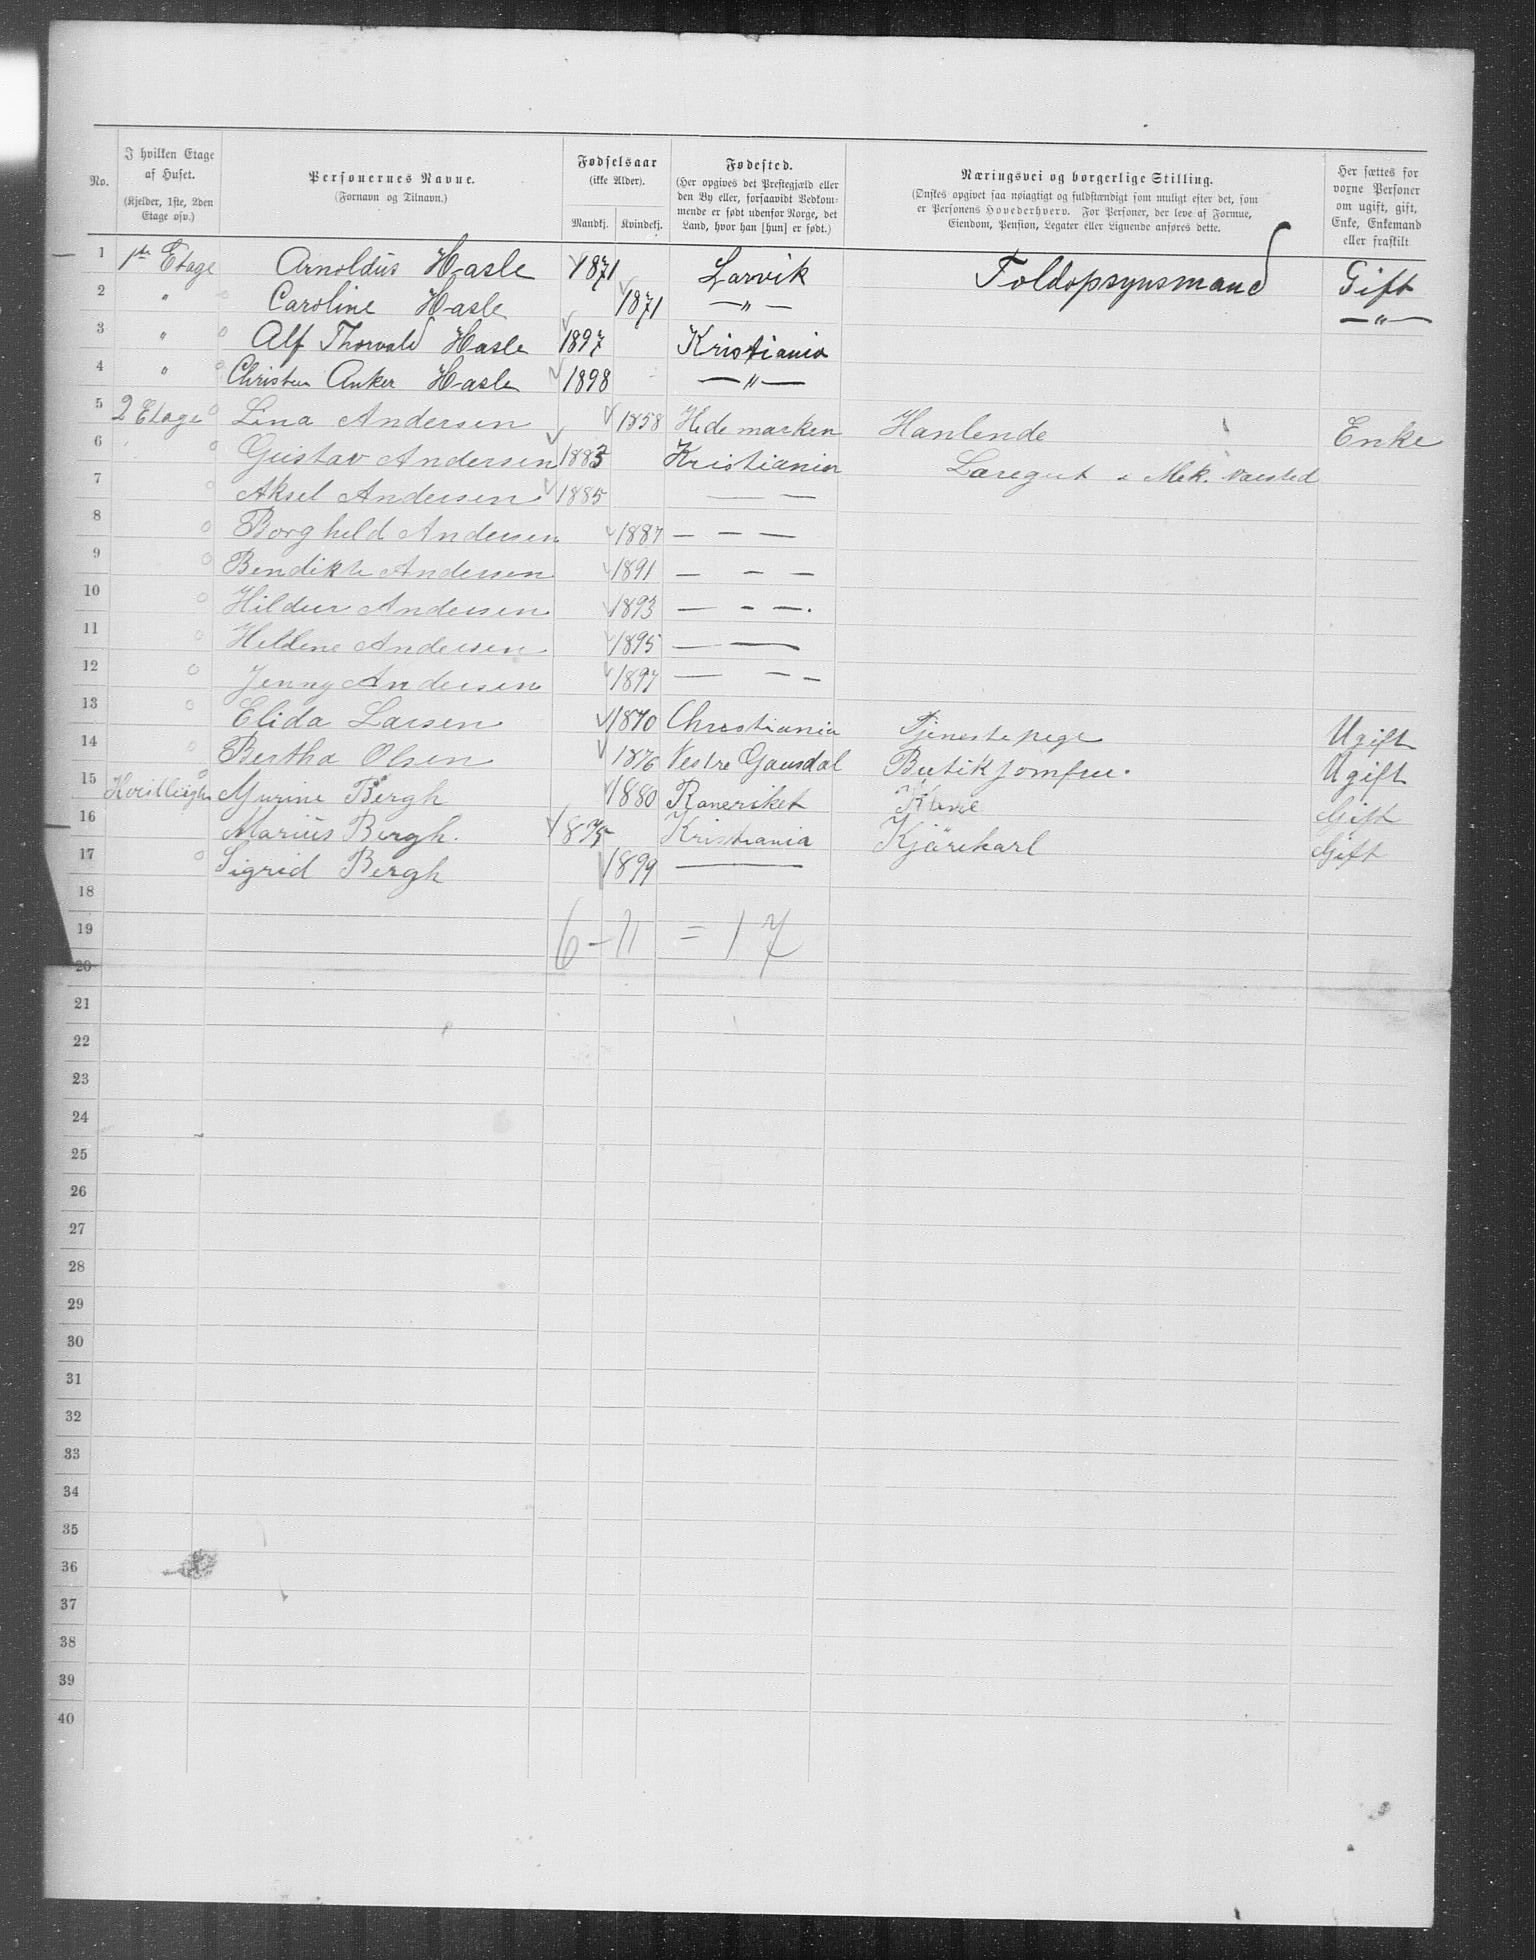 No. I hvilken Etage af Huset. (Kjelder, 1ste, 2den Etage osv.) Personernes Navne. (Fornavn og Tilnavn.) Fødselsaar (ikke Alder). Mandkj. Kvindekj. Fødested. (Her opgives det Prestegjæld eller den By eller, forsaavidt Vedkommende er født udenfor Norge, det Land, hvor han [hun] er født.) Næringsvei og borgerlige Stilling. (Ønskes opgivet saa nøiagtigt og fuldstændigt som muligt efter det, som er Personens Hovederhverv. For Personer, der leve af Formue, Eiendom, Pension, Legater eller Lignende anføres dette. Her sættes for voxne Personer om ugift, gift, Enke, Enkemand eller fraskilt
1 1ste Etage Arnoldus Hasle 1871 Larvik Toldopsynsmand Gift
2 " Caroline Hasle 1871 —"— —"—
3 " Alf Thorvald Hasle 1897 Kristiania
4 " Christen Anker Hasle 1898 —"—
5 2 Etage Lina Andersen 1858 Hedemarken Hanlende Enke
6 Gustav Andersen 1883 Kristiania Læregut i Mek. Værsted
7 Aksel Andersen 1885 — —
8 Borghild Andersen 1887 — — —
9 Bendikte Andersen 1891 — — —
10 Hildur Andersen 1893 — — —
11 Heldene Andersen 1895 — —
12 Jenny Andersen 1897 — — —
13 Elida Larsen 1870 Christiania Tjenestepege Ugift
14 Bertha Olsen 1876 Vestre Gausdal Butikjomfru. Ugift
15 Murine Bergh 1880 Romeriket Kone Gift
16 Marius Bergh. 1875 Kristiania Kjörekarl Gift
17 Sigrid Bergh 1899 ——
18
19 6 - 11 = 17
20
21
22
23
24
25
26
27
28
29
30
31
32
33
34
35
36
37
38
39
40